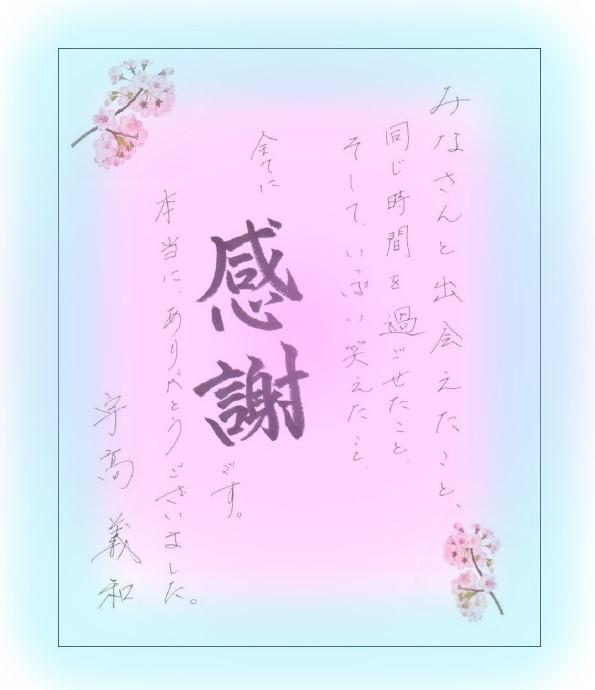 みなさんと出会えたこと、
同じ時間を過ごせたこと、
そして、いっぱい笑えたこと、
全てに
感謝です。
本当に、ありがとうございました。
宇高義和